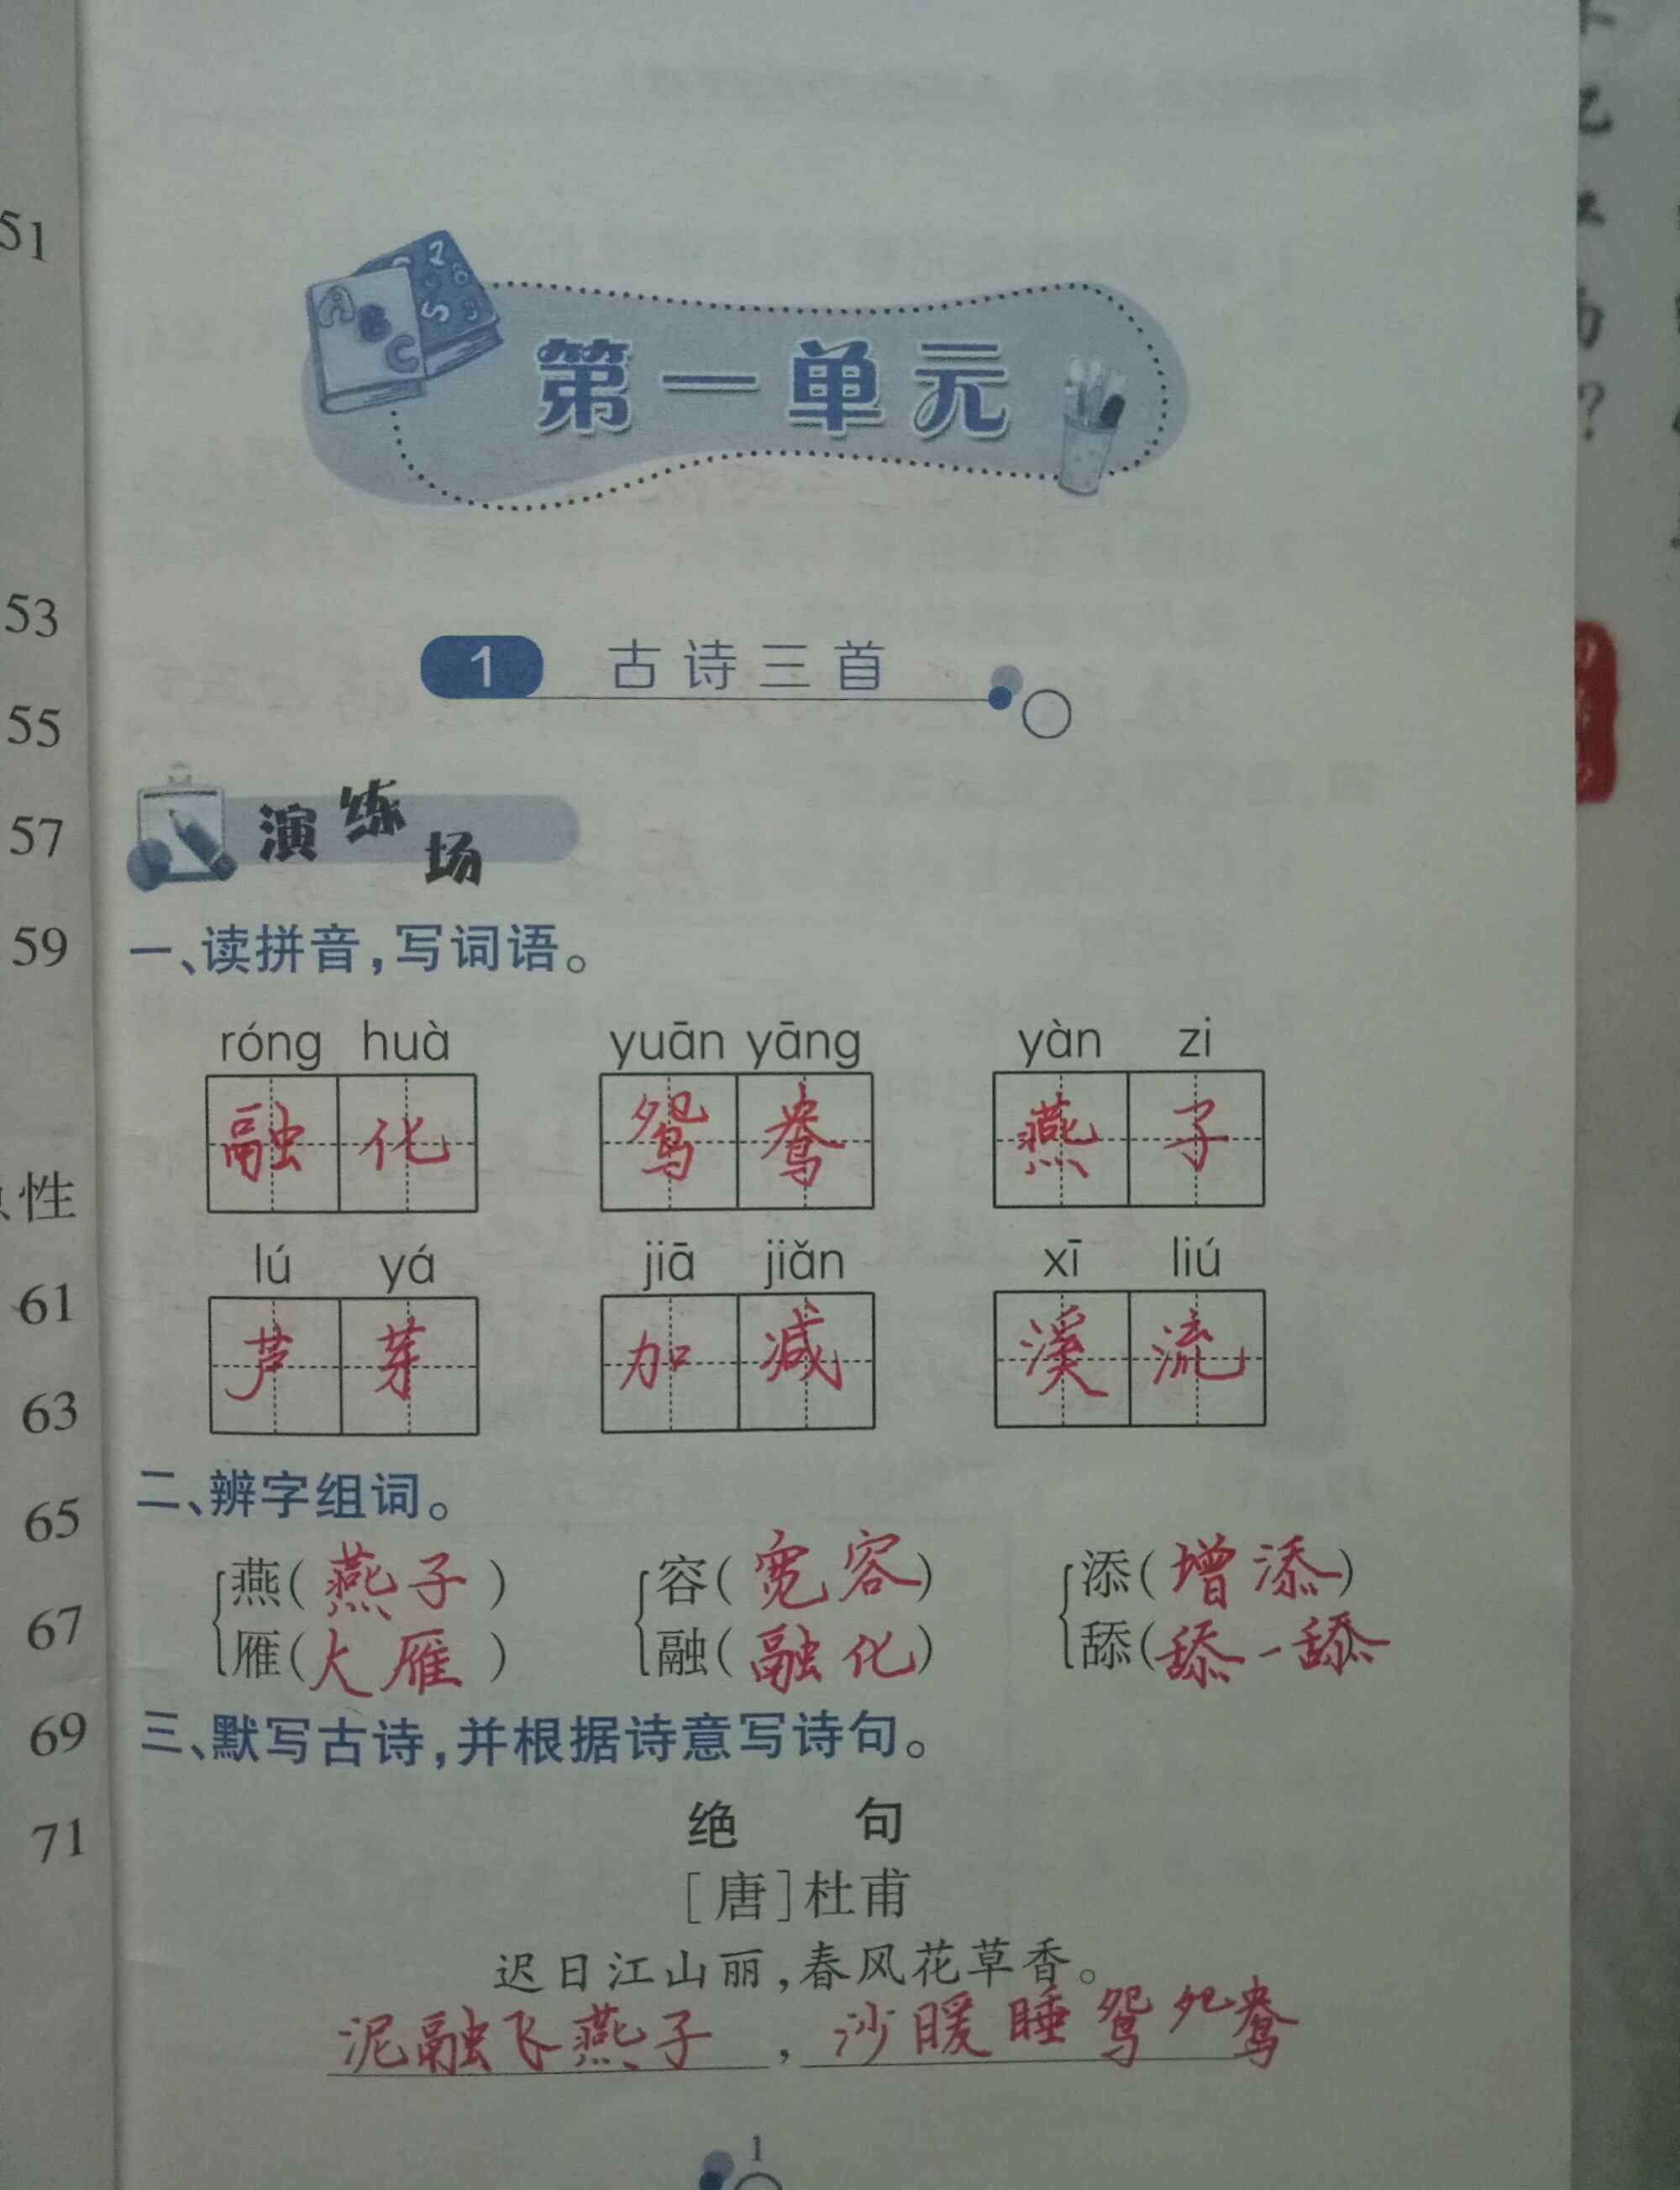 第一单元
1 古诗三首
演练场
一、读拼音,写词语。
róng huà yuān yāng yàn zi
融化 鸳鸯 燕子
lú yá jiā jiǎn xī liú
芦芽 加减 溪流
二、辨字组词。
燕(燕子) 容(宽容) 添(增添)
雁(大雁) 融(融化) 舔(舔一舔
三、默写古诗,并根据诗意写诗句。
绝 句
[唐]杜甫
迟日江山丽,春风花草香。
泥融飞燕子,沙暖睡鸳
1
51
53
55
57
59
性
61
63
65
67
69
71
?